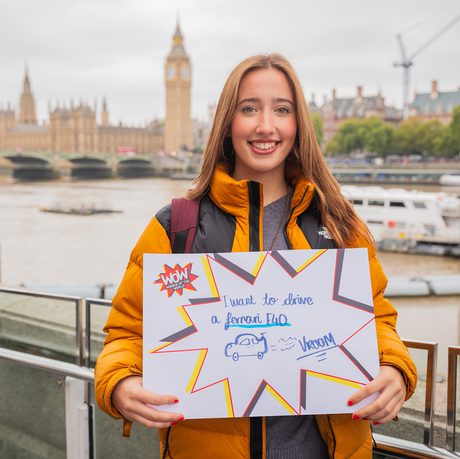 WOW
I want to drive
a ferrari F40
VROOM